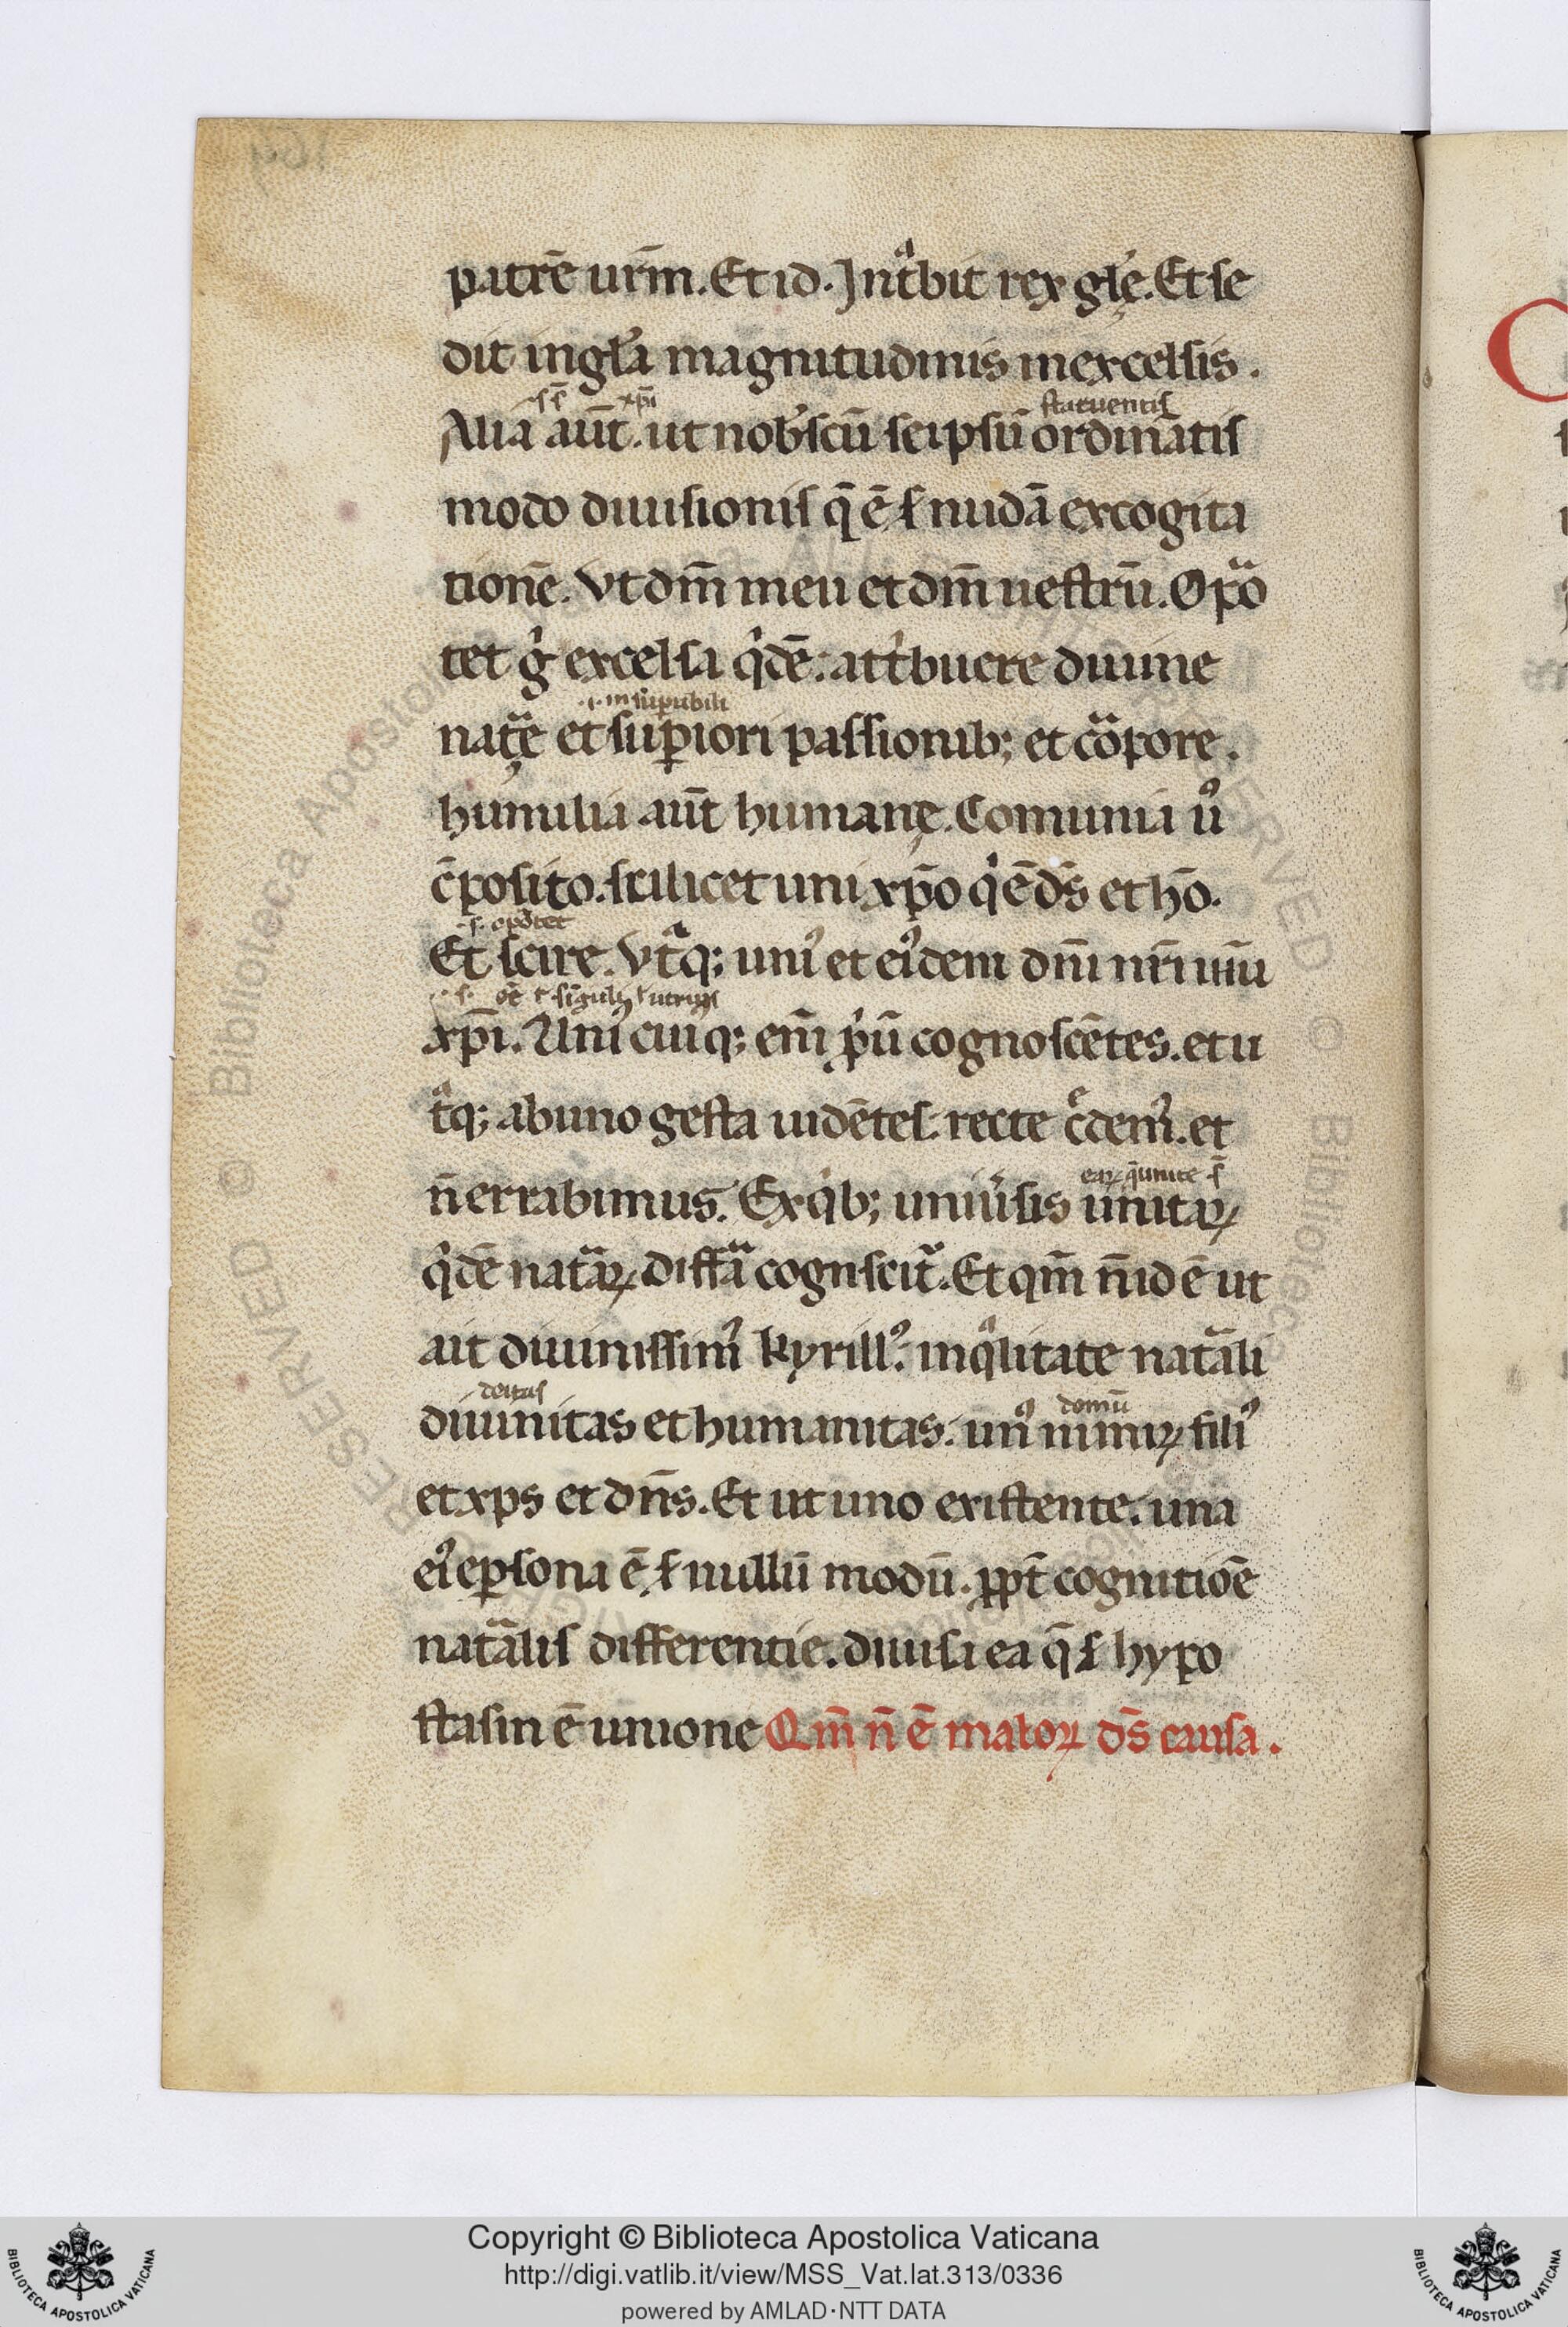 patrē ur̄m. Et id. Intᵃbit rex glę. Et se
dit in gl̓a magnitudinis in excelsis.
s̄ s̄ xp̄i statuentis
Alia aūt. ut nob̓scū seipsū ordinatis
modo diuisionis q̄ ē ẜ nudā excogita
tionē. Vt dm̄ meū et dm̄ uestrū. Opo
tet gͥ excelsa qͥdē: attͥbuere diuine
.i. insupabili
natᵃę et suꝑiori passionib; et cͣorpore.
humilia aūt humanę. Comunia uͦ
c̄posito. scilicet uni xp̄o qͥ ē ds̄ et hō.
.s. oportet
Et scire. Vtͣq; uniꝰ et eiꝰdem dn̄i nr̄i iħu
xp̄i. Uniꝰcuiꝰq; em̄ ꝓͥū cognoscētes. et u
tͣq; ab uno gesta uidētes. recte cͤdemꝰ. et
eaꝝ q̄ unite s̄
n̄ errabimus. Ex qͥb; uniu̓sis unitaꝝ
qͥdē natᵃꝝ diffͣa cognoscitᷣ. Et qm̄ n̄ id ē ut
ait diuinissimꝰ kyrillꝰ. in qͣlitate natᵃli
deitas domū
diuinitas et humanitas. unꝰ nimiꝝ filiꝰ
et xps et dn̄s. Et ut uno existente. una
eiꝰ ꝑsona ē ẜ nullū modū. ꝓpt̄ cognitiōē
natᵃlis differentie. diuisi ea q̄ ẜ hypo
stasin ē unione Qm̄ n̄ ē maloꝝ ds̄ causa.
Copyright © Biblioteca Apostolica Vaticana
http://digi.vatlib.it/view/MSS_Vat.lat.313/0336
powered by AMLAD·NTT DATA
BIBLIOTECA APOSTOLICA VATICANA
BIBLIOTECA APOSTOLICA VATICANA